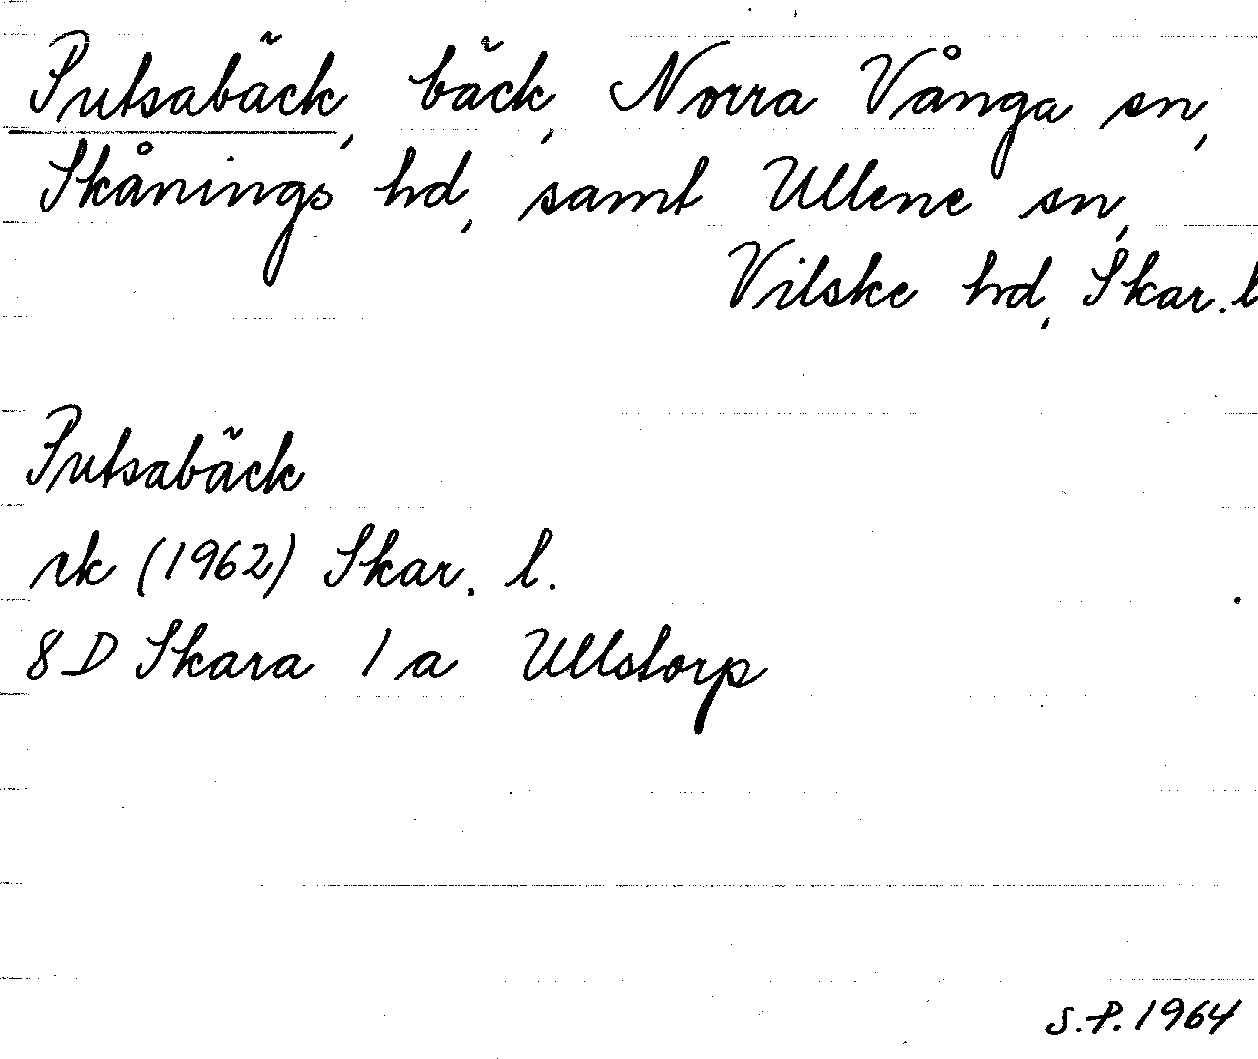 Putsabäck, bäck, Norra Vånga sn,
Skånings hd, samt Ullene sn,
Vilske hd, Skar. l
Putsabäck
rk (1962) Skar. l.
8 D Skara 1 a Ullstorp
S.P. 1964